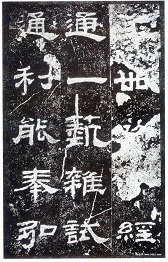 卌以經
通一藝雜試
通利能奉弘